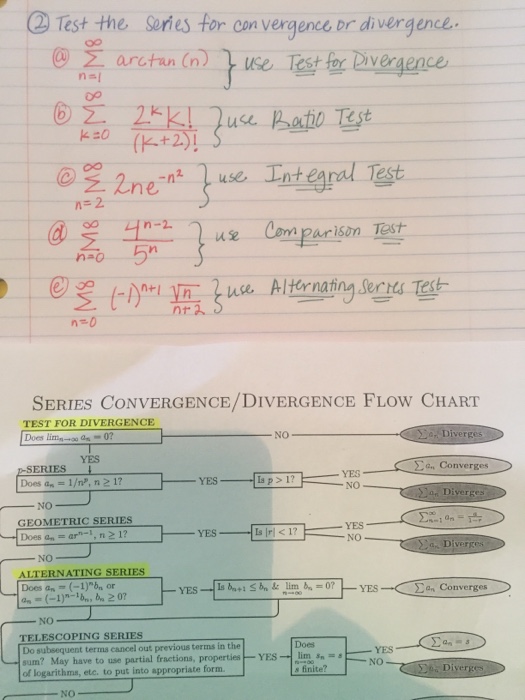 ② Test the series for convergence or divergence.
ⓐ ∞ Σ n=1 arctan (n) } use Test for Divergence
ⓑ ∞ Σ k=0 2^k k! / (k+2)! } use Ratio Test
ⓒ ∞ Σ n=2 2ne^-n² } use Integral Test
ⓓ ∞ Σ n=0 4^n-2 / 5^n } use Comparison Test
ⓔ ∞ Σ n=0 (-1)^n+1 √n / n+2 } use Alternating Series Test
SERIES CONVERGENCE/DIVERGENCE FLOW CHART
TEST FOR DIVERGENCE
Does lim n→∞ aₙ = 0?
NO
Σaₙ Diverges
YES
p-SERIES
Does aₙ = 1/n^p, n ≥ 1?
YES
Is p > 1?
YES
Σaₙ Converges
NO
Σaₙ Diverges
NO
GEOMETRIC SERIES
Does aₙ = ar^n−1, n ≥ 1?
YES
Is |r| < 1?
YES
Σ∞ n=1 aₙ = a/1−r
NO
Σaₙ Diverges
NO
ALTERNATING SERIES
Does aₙ = (−1)^n bₙ or
aₙ = (−1)^n−1 bₙ, bₙ ≥ 0?
YES
Is bₙ₊₁ ≤ bₙ & lim n→∞ bₙ = 0?
YES
Σaₙ Converges
NO
TELESCOPING SERIES
Do subsequent terms cancel out previous terms in the
sum? May have to use partial fractions, properties
of logarithms, etc. to put into appropriate form.
YES
Does
lim n→∞ sₙ = s
s finite?
YES
Σaₙ = s
NO
Σaₙ Diverges
NO